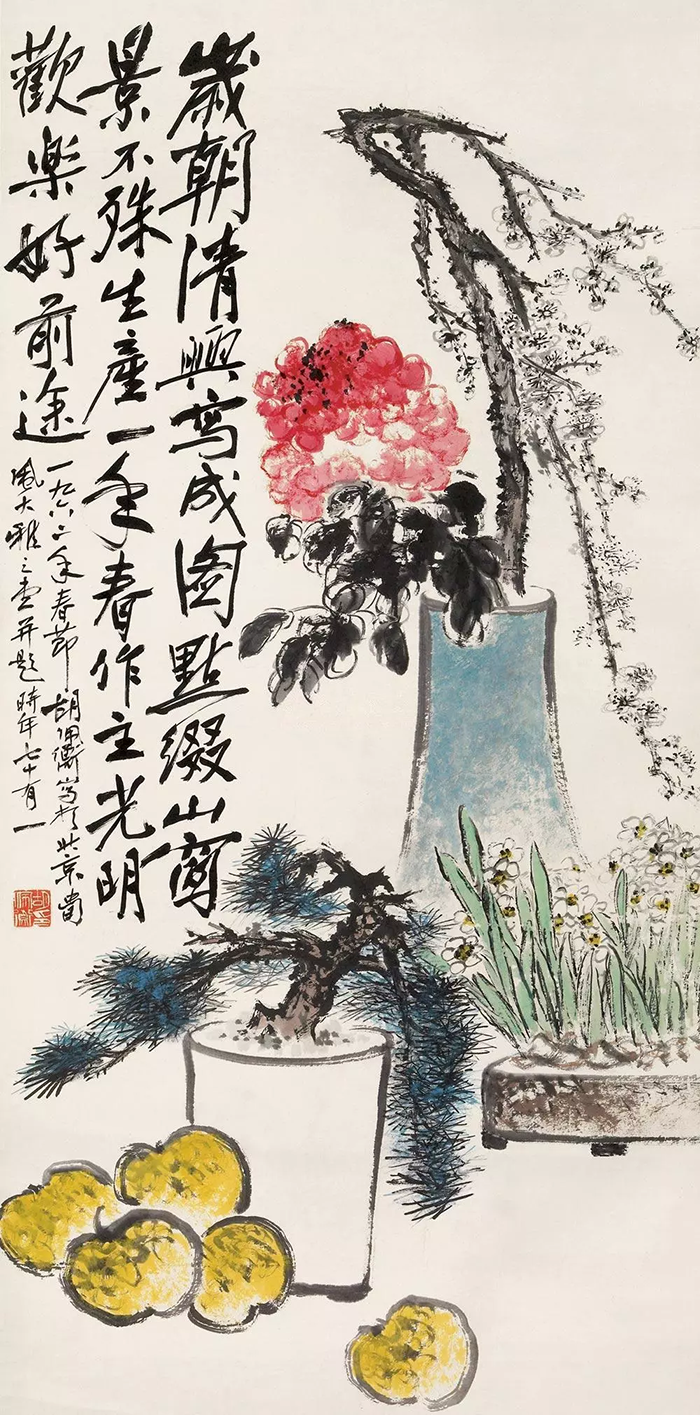 歲朝清興寫成圖點綴山窗
景不殊生產一年春作主光明
歡樂好前途
一九六二年春節胡佩衡寫於北京蜀
風大雅之堂并題時年七十有一